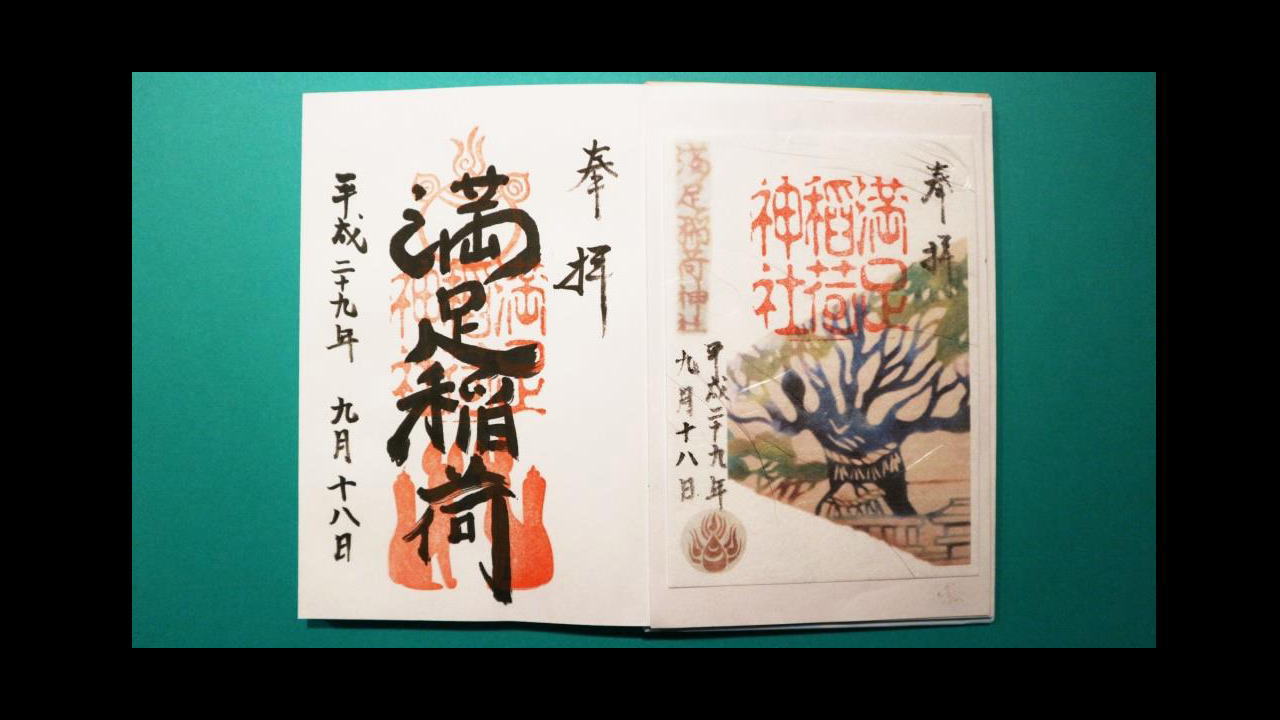 奉拝
満足稲荷神社
満足稲荷
平成二十九年 九月十八日
奉拝
満足稲荷神社
満足稲荷神社
平成二十九年
九月十八日